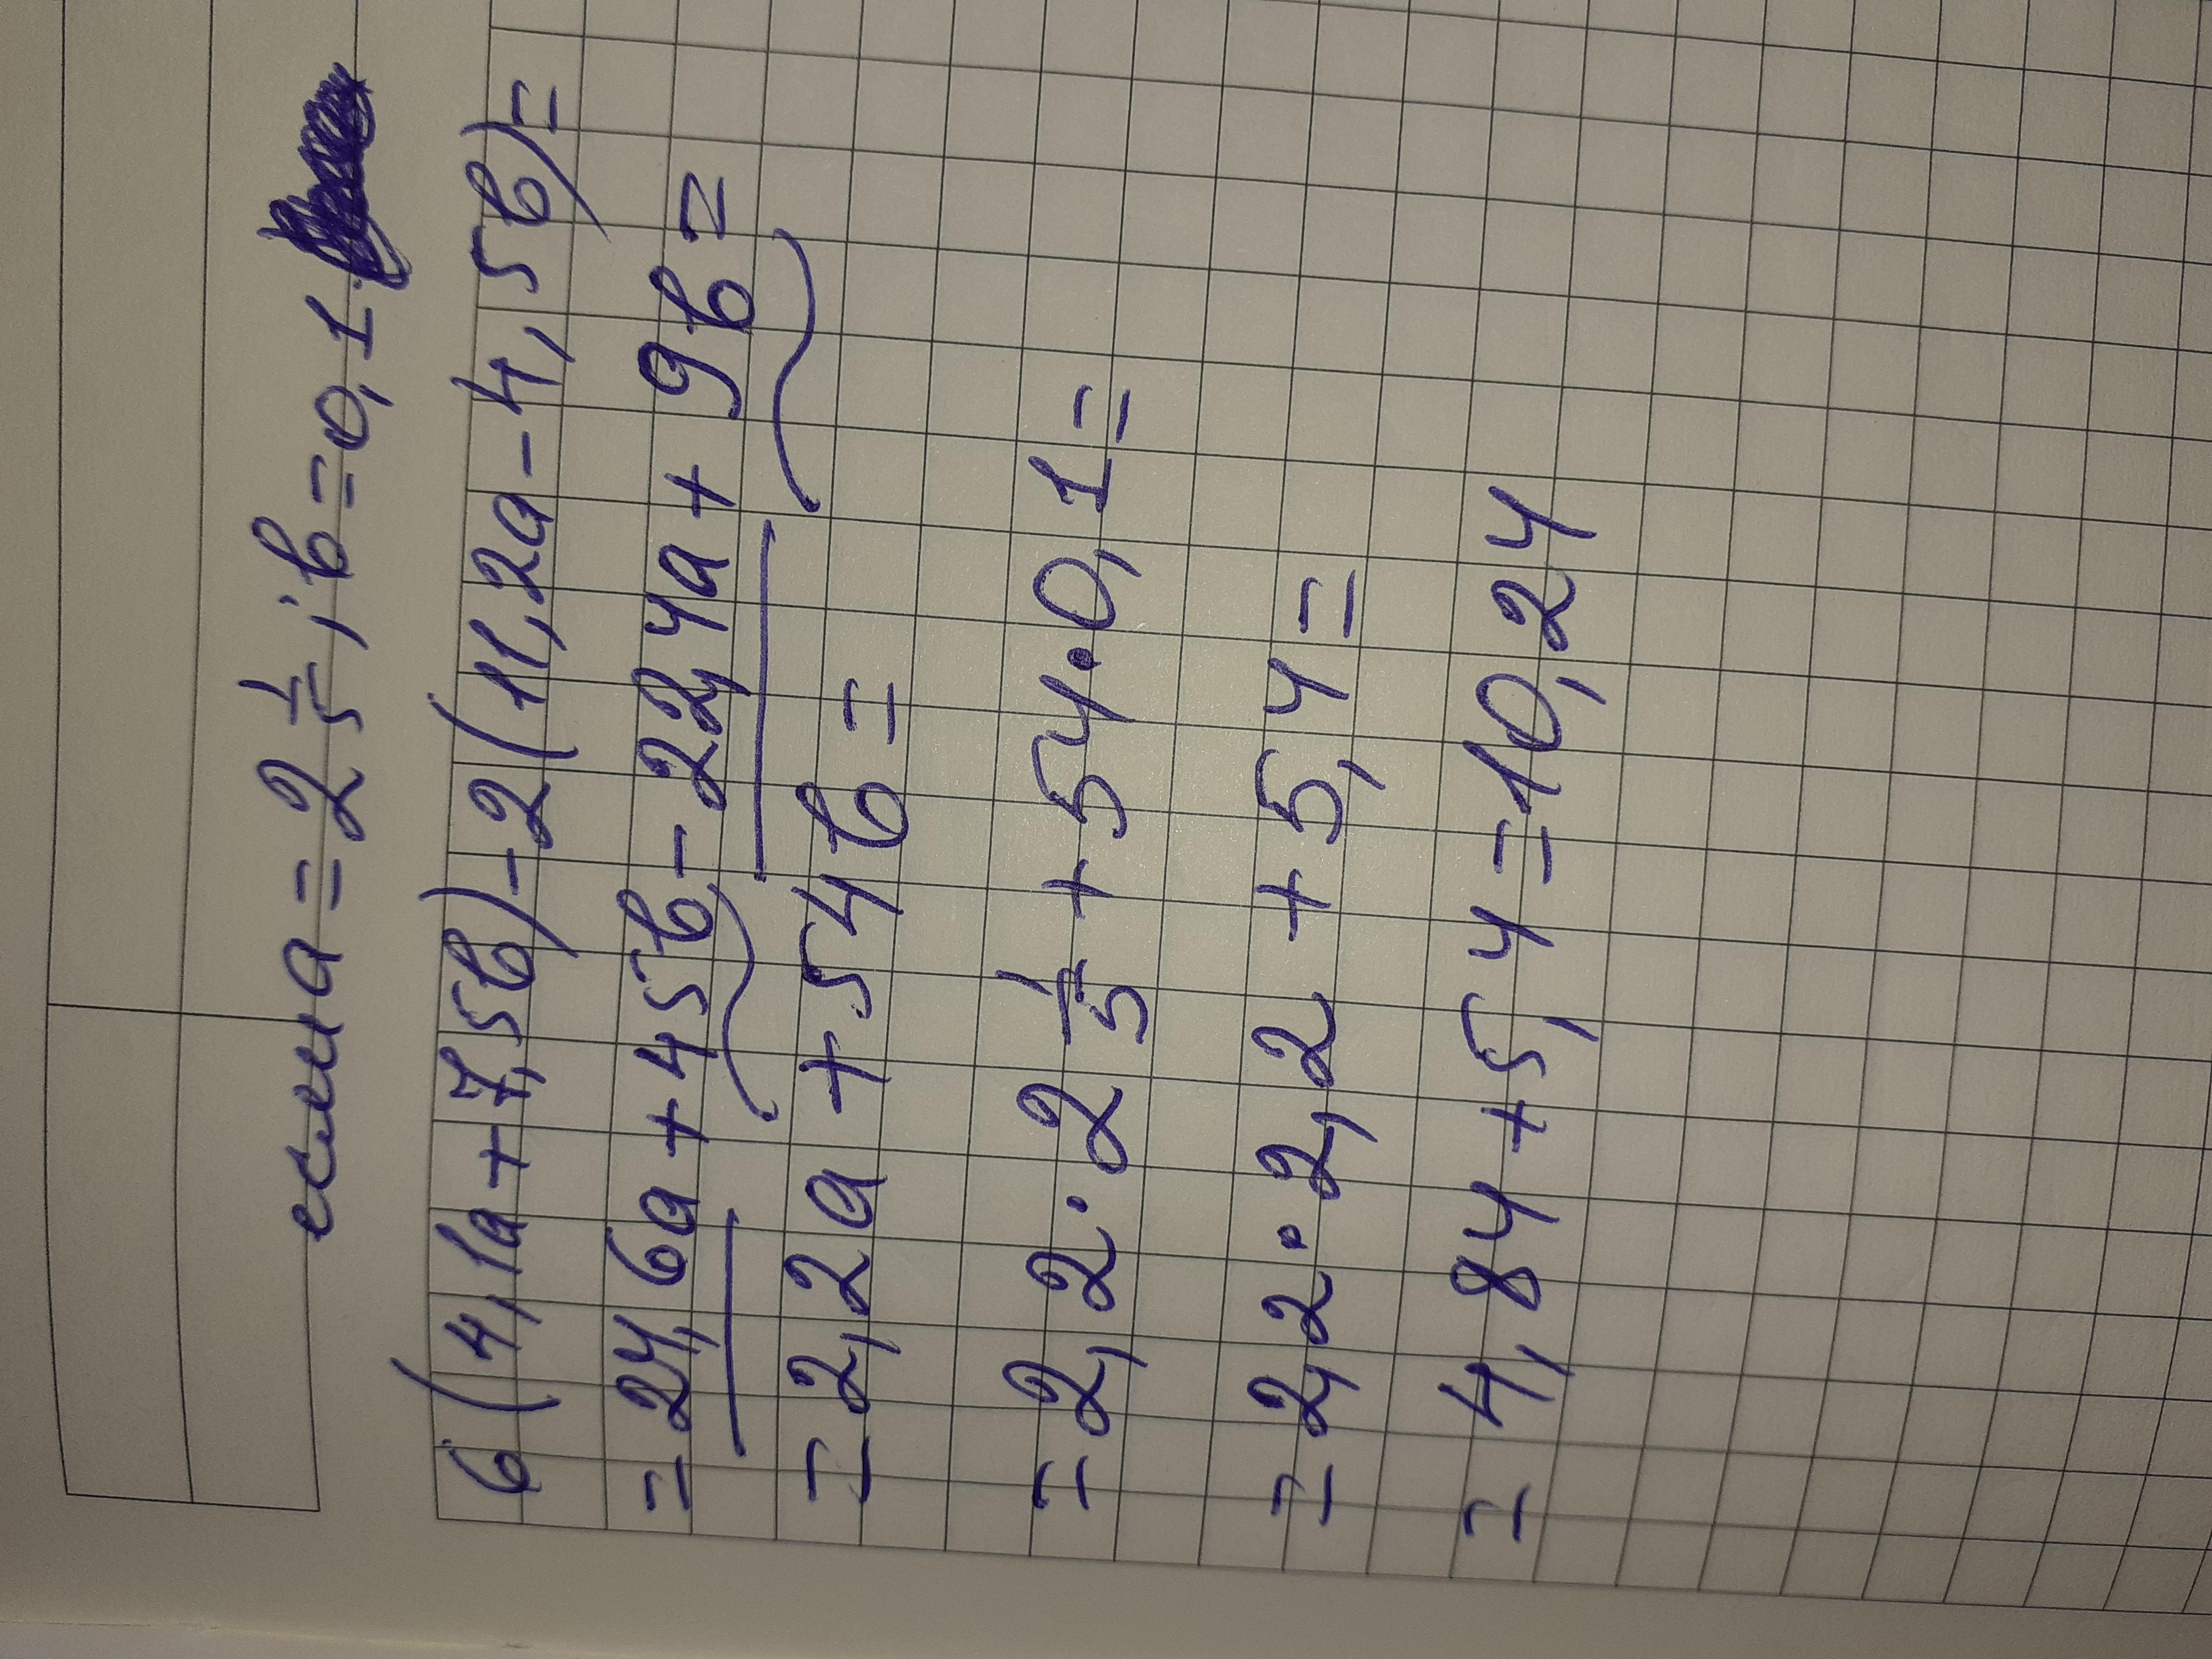 если a = 2 1/5; в = 0,1
6(4,1a + 7,5в) - 2(11,2a - 4,5в) =
= 24,6a + 45в - 22,4a + 9в =
= 2,2a + 54в =
= 2,2 · 2 1/5 + 54 · 0,1 =
= 2,2 · 2,2 + 5,4 =
= 4,84 + 5,4 = 10,24